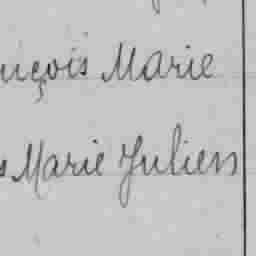 nçois Marie
s Marie Julien